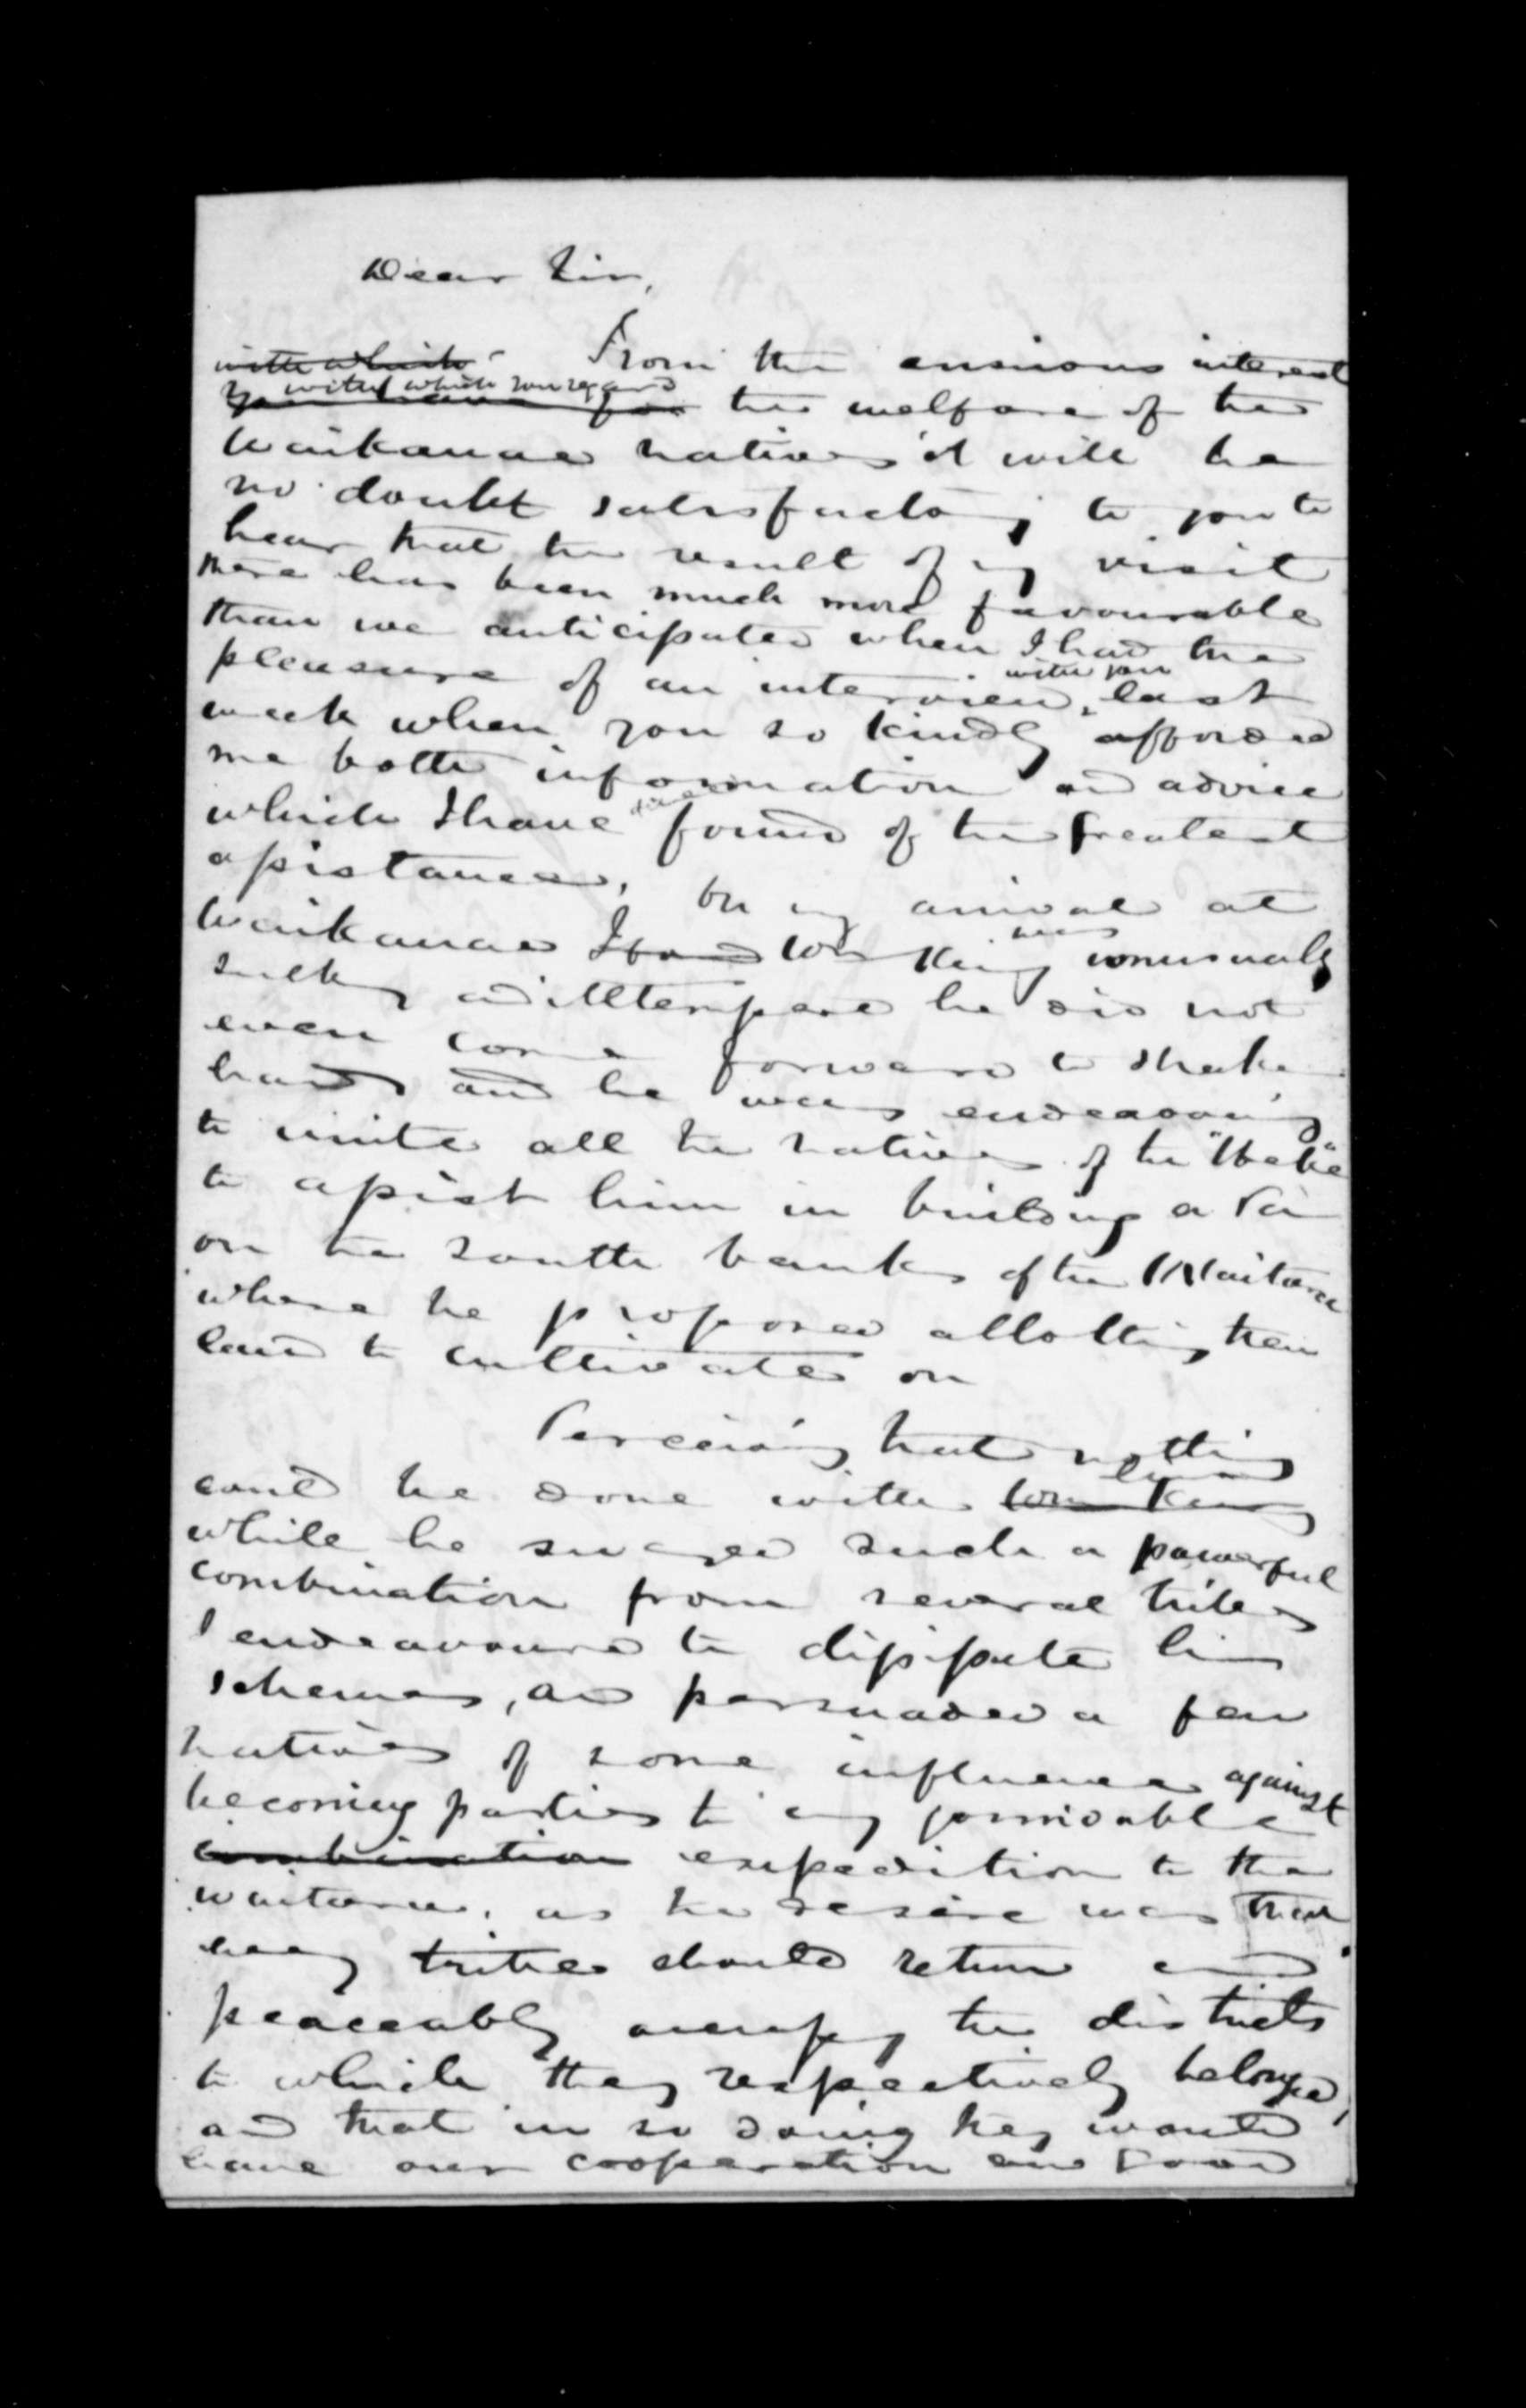 Dear Sir,
From the anxious interest
with which
with which you regard
you have for the welfare of the
Waikanae natives it will be
no doubt satisfactory to you to
hear that the result of my visit
there has been much more favourable
than we anticipated when I had the
pleasure of an interview with you last
week when you so kindly afforded
me both information and advice
which I have since found of the greatest
assistance, On my arrival at
Waikanae I found Wm King was unusually
sulky and illtempered he did not
even come forward to shake
hands and he was endeavouring
to unite all the natives of the "Heke"
to assist him in building a Pa
on the south banks of the Waitara
where he proposed allotting them
land to cultivate on
Perceiving that nothing
could be done with Wm King him
while he swayed such a powerful
combination from several tribes
I endeavoured to dissipate his
schemes, and persuaded a few
natives of some influence against
becoming parties to any formidable
combination expedition to the
Waitara, as the desire was that
tribes should return and
peaceably occupy the districts
to which they respectively belonged,
and that in so doing they would
have our cooperation and good